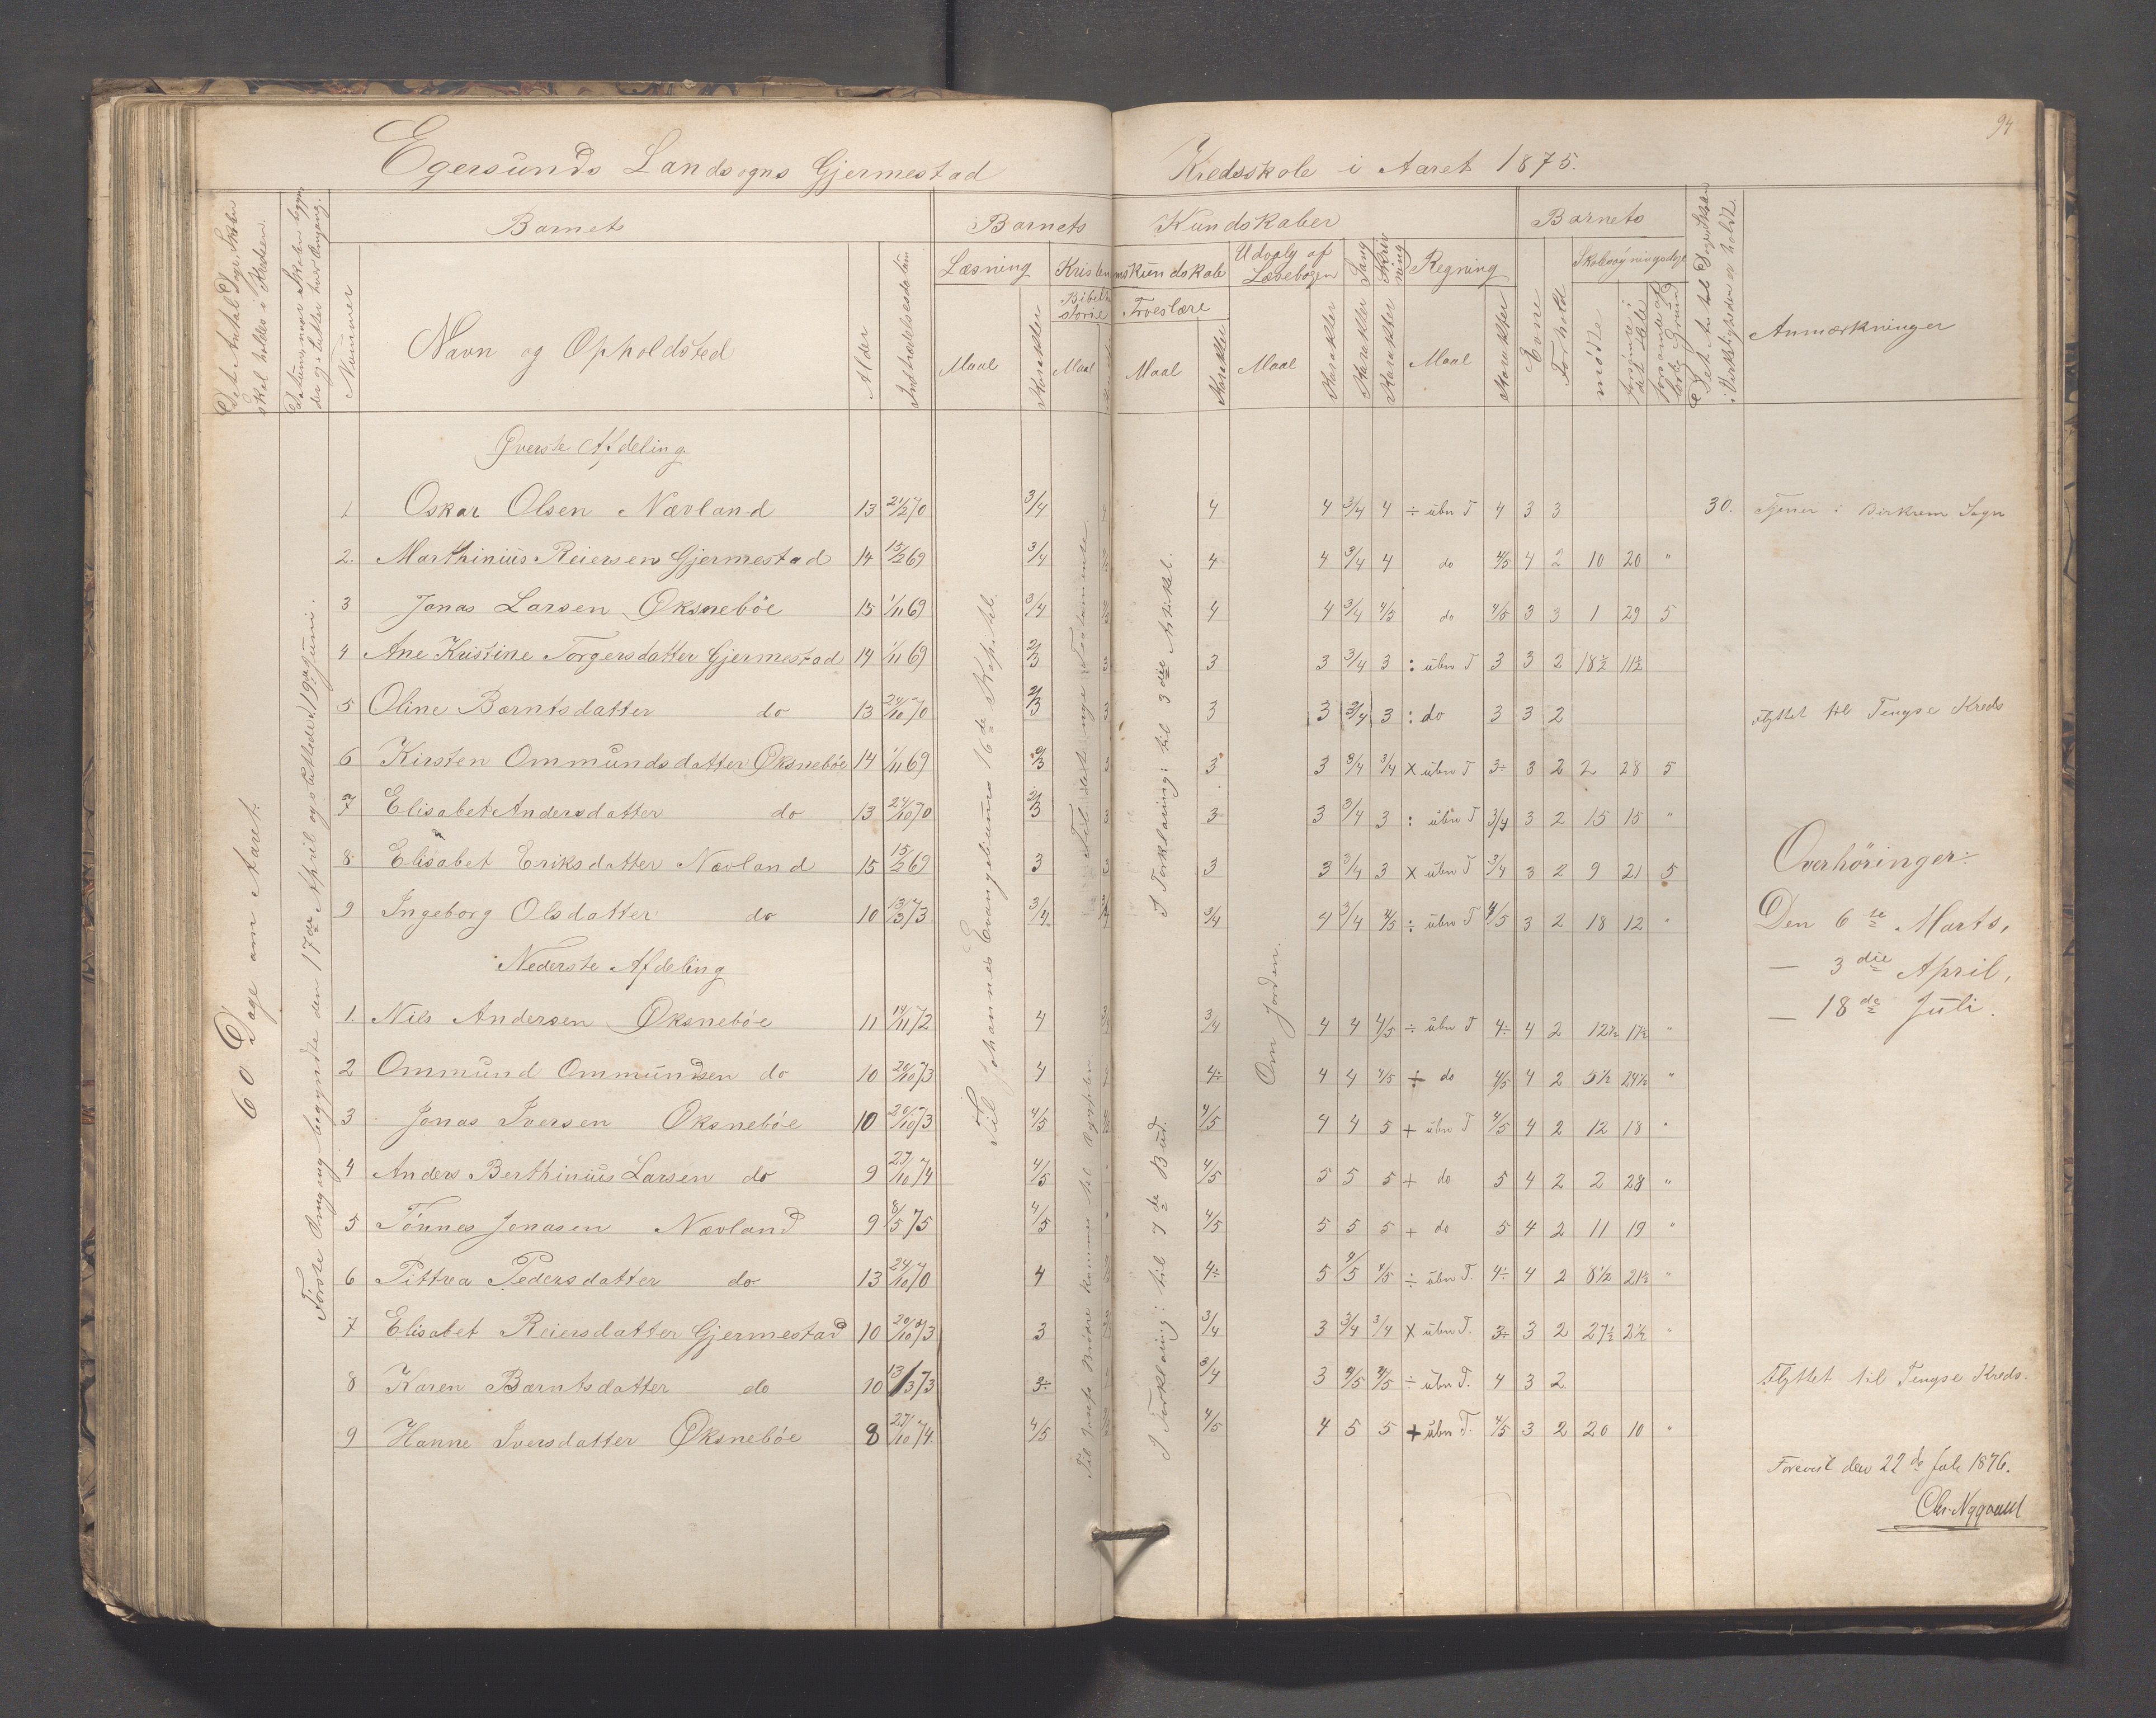 94
Egersunds Landsogns Gjermestad Kredsskole i Aaret 1875.
Det Antal Dage Skolen skal holdes i Kredsen.
Datumer naar Skolen begynder og slutter hver Omgang.
Barnets
Barnets Kundskaber
Barnets
Nummer
Navn og Opholdsted
Alder
Indtrædelsesdatum
Læsning
Kristendomskundskab
Udvalg af Læsebogen
Sang
Skrivning
Regning
Bibelhistorie
Troeslære
Maal
Karakter
Maal
Maal
Karakter
Maal
Karakter
Karakter
Karakter
Maal
Karakter
Evne
Forhold
Skolesøgningsdage
mødte
Det Antal Dage Skolen i Virkeligheden er holdt.
Anmærkninger
60 Dage om Aaret.
Første Omgang begyndte den 17de April og sluttede d. 19de Juni.
Til Johannes Evangeliums 16de Kapitel.
Til det nye Testamente
I Forklaring: til 3die Artikkel.
Om Jorden.
Til Josefs Brødre kommer til Ægypten
I Forklaring: til 7de Bud.
Øverste Afdeling
1 Oskar Olsen Nævland 13 21/2 70 3/4 4 4 3/4 4 ÷ ubn T 4 3 3 30. Tjener i Birkrem Sogn
2. Marthinius Reiersen Gjermestad 14 15/2 69 3/4 4 4 3/4 4 do 4/5 4 2 10 20 "
3 Jonas Larsen Øksnebøe 15 1/11 69 3/4 4 4 3/4 4/5 do 4/5 3 3 1 29 5
4 Ane Kristine Torgersdatter Gjermestad 14 1/11 69 2/3 3 3 3 3/4 3 : ubn T 3 3 2 18½ 11½
5 Oline Berntsdatter do 13 24/10 70 2/3 3 3 3 3/4 3 : do 3 3 2 Flyttet til Tengse Kreds
6 Kirsten Ommundsdatter Øksnebøe 14 1/11 69 2/3 3 3 3 3/4 3/4 x ubn T 3÷ 3 2 2 28 5
7 Elisabet Andersdatter do 13 24/10 70 2/3 3 3 3 3/4 3 : ubn T 3/4 3 2 15 15 "
8 Elisabet Eriksdatter Nævland 15 15/2 69 3 3 3 3 3/4 3 x ubn T 3/4 3 2 9 21 5
9 Ingeborg Olsdatter do 10 13/3 73 3/4 3/4 3/4 4 3/4 4/5 ÷ ubn T 4/5 3 2 18 12 "
Overhöringer:
Den 6te Marts,
— 3die April,
— 18de Juli.
Nederste Afdeling
1. Nils Andersen Øksnebøe 11 14/11 72 4 3/4 4 4 4/5 ÷ ubn T 4÷ 4 2 12½ 17½ "
2 Ommund Ommundsen do 10 20/10 73 4 4÷ 4 4 4/5 + do 4/5 4 2 5½ 24½ "
3 Jonas Iversen Øksnebøe 10 20/10 73 4/5 4/5 4 4 5 + ubn T 4/5 4 2 12 18 "
4 Anders Berthinius Larsen do 9 27/10 74 4/5 4/5 5 5 5 + do 5 4 2 2 28 "
5 Tönnes Jonasen Nævland 9 8/5 75 4/5 4/5 5 5 5 + do 5 4 2 11 19 "
6 Pittrea Pedersdatter do 13 24/10 70 4 4÷ 5 4/5 4/5 ÷ ubn T. 4÷ 4 2 8½ 21½ "
7 Elisabet Reiersdatter Gjermestad 10 20/10 73 3 3/4 3 3/4 3/4 x ubn T. 3÷ 3 2 27½ 2½ "
8 Karen Berntsdatter do 10 13/3 73 3÷ 3/4 3 4/5 4/5 ÷ ubn T. 4 3 2 Flyttet til Tengse Kreds.
9 Hanne Iversdatter Øksnebøe 8 27/10 74 4/5 4/5 4 5 5 + ubn T. 4/5 3 2 20 10 "
Forevist den 22de Juli 1876.